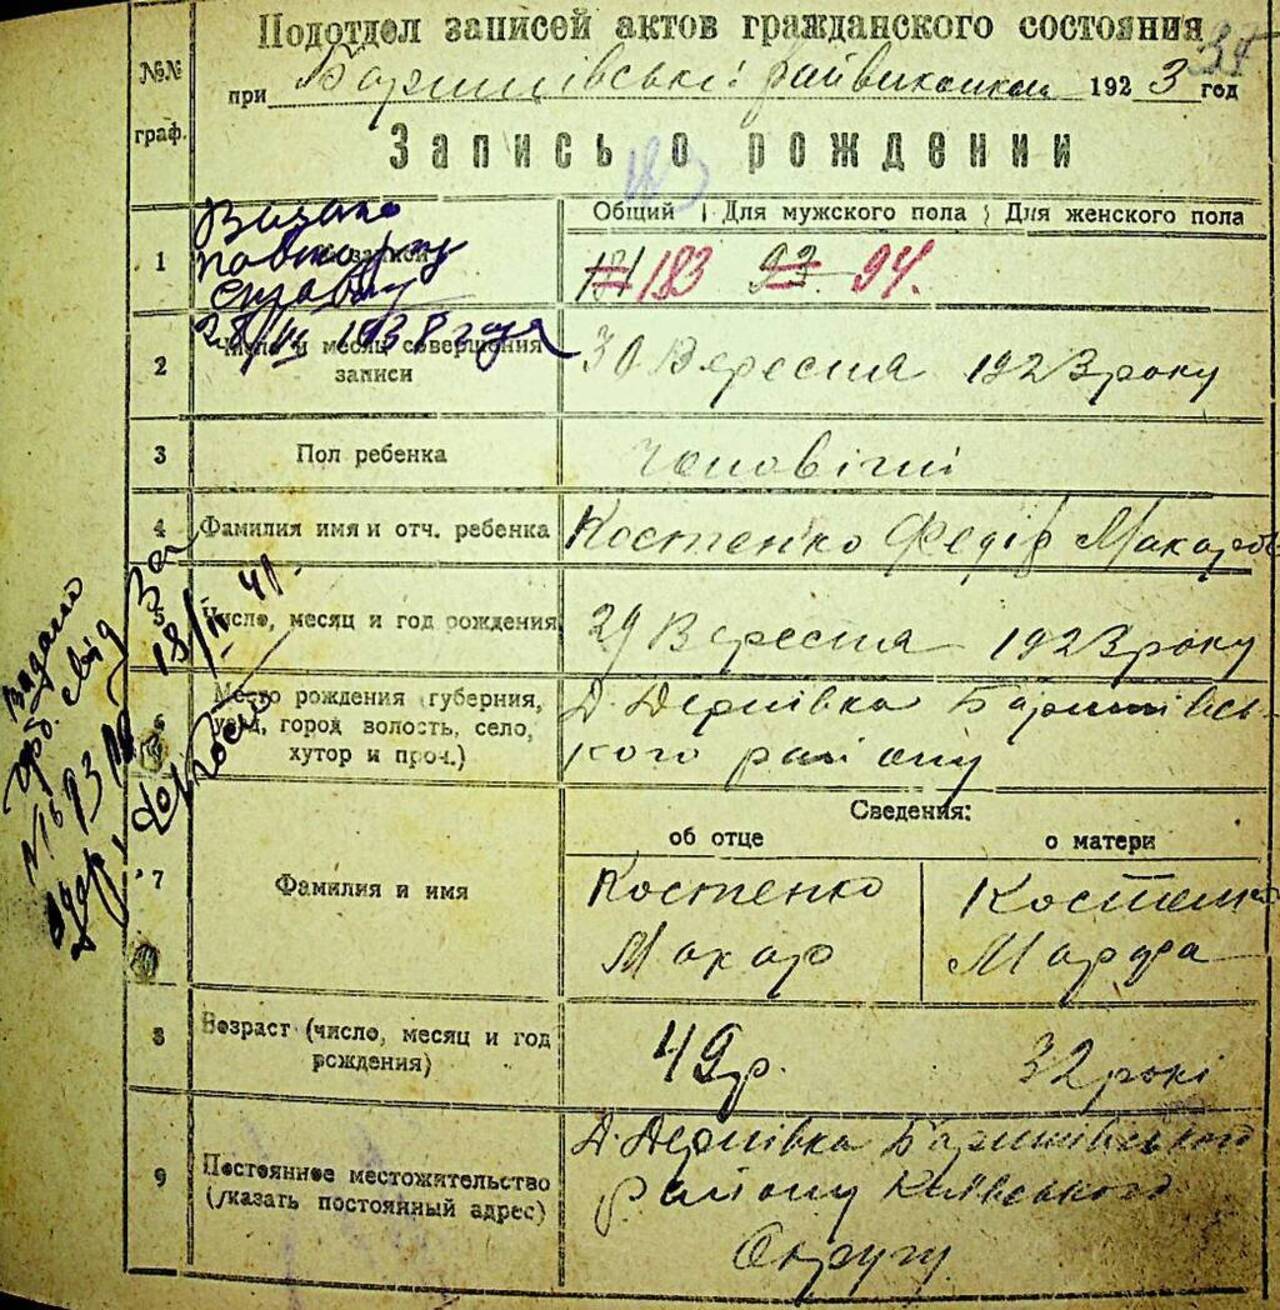 Подотдел записей актов гражданского состояния
при Баришівські райвиконком 1923 год
№№ граф.
Запись о рождении
183
Общий Для мужского пола Для женского пола
1 записи 181 183 93 94.
Видано
повторну
справку
28/ 1938 года
2 Число и месяц совершения записи 30 Вересня 1923 року
3 Пол ребенка Чоловічий
4 Фамилия имя и отч. ребенка Костенко Федір Макаров
5 Число, месяц и год рождения 29 Вересня 1923 року
6 Место рождения (губерния, Д. Дернівка Баришівсь-
уезд, город волость, село, кого району
хутор и проч.)
Сведения:
об отце о матери
7 Фамилия и имя Костенко Костенко
Макар Марфа
8 Возраст (число, месяц и год 49 р. 32 рокі
рождения)
9 Постоянное местожительство Д. Дернівка Баришівського
(указать постоянный адрес) району Київського
Округу
Видано
свід
За
18/ 41